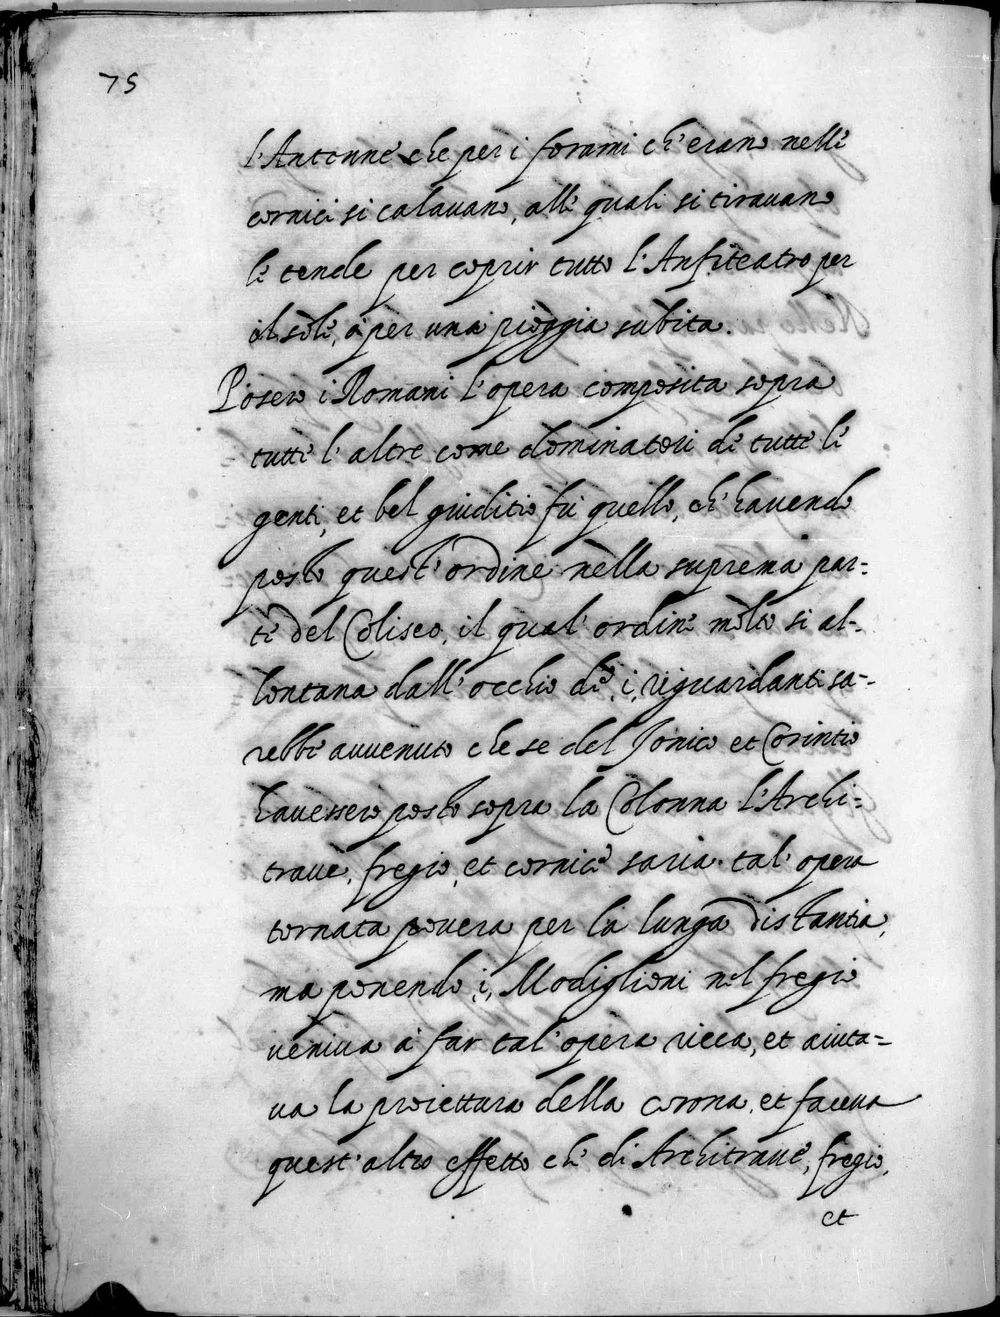 75
l'Antenne che per i forami ch'erano nelle
cornici si calavano, alle quali si tiravano
le tende per coprir tutto l'Anfiteatro per
il sole, ò per una pioggia subita.
Posero i Romani l'opera composita sopra
tutte l'altre come dominatori de tutte le
genti, et bel giuditio fù quello, ch'havendo
posto quest'ordine nella suprema par=
te del Coliseo, il qual'ordine molto si al=
lontana dall'occhio de, i, riguardanti sa=
rebbe avvenuto che se del Jonico et Corintio
havessero posto sopra la Colonna l'Archi=
trave, fregio, et cornice saria tal'opera
tornata povera per la lunga distantia,
ma ponendo ,i, Modiglioni nel fregio
veniva à far tal'opera ricca, et aiuta=
va la proiettura della corona, et faceva
quest'altro effetto che di Architrave, fregio,
et